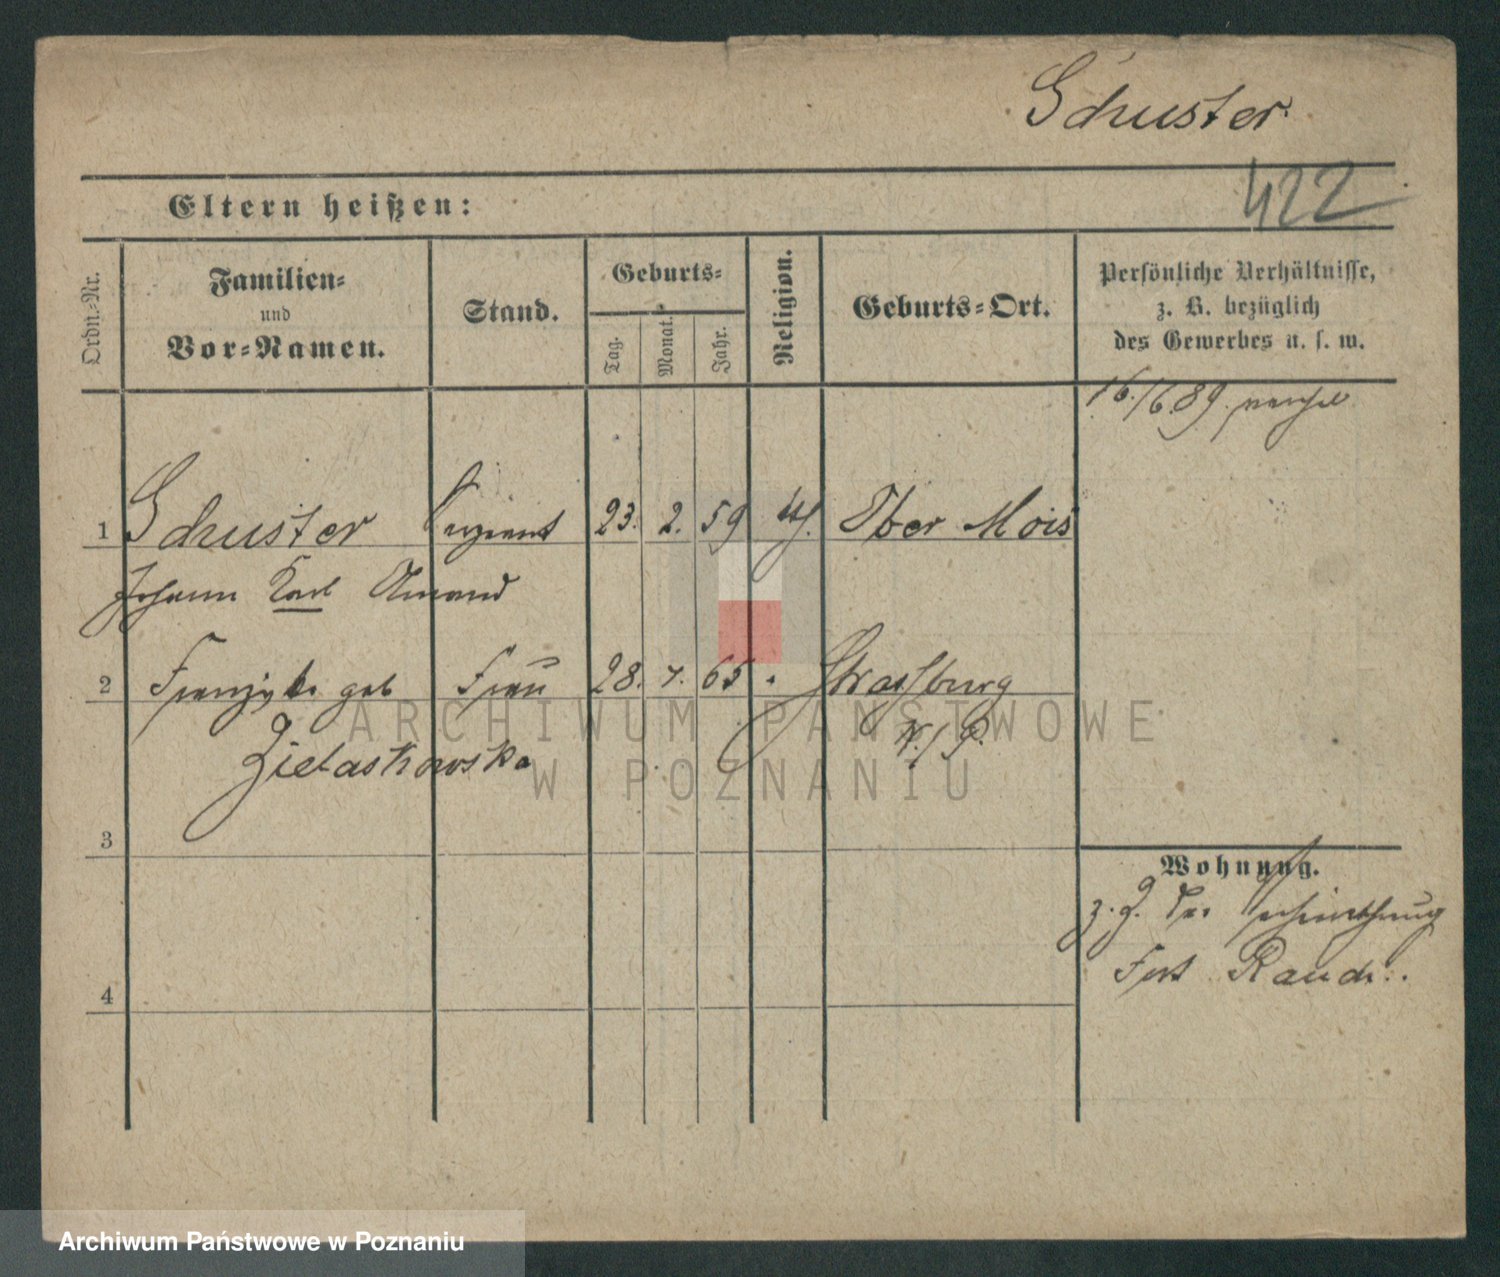 Schuster
422
Eltern heißen:
Ordn.-Nr.
Familien-
und
Vor-Namen.
Stand.
Geburts-
Tag.
Monat.
Jahr.
Religion.
Geburts-Ort.
Persönliche Verhältnisse,
z. B. bezüglich
des Gewerbes u. s. w.
16./6.89.
1 Schuster Sergeant 23. 2. 59 Ober Mois
Johann Karl Amand
2 Franziska geb Frau 28. 7. 65 Strassburg
W./P.
Zielaskowska
3
4
Wohnung.
z. Z. der
Fort Rauch.
ARCHIWUM PAŃSTWOWE
W POZNANIU
Archiwum Państwowe w Poznaniu